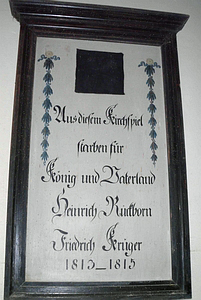 Aus diesem Kirchspiel
starben für
König und Vaterland
Heinrich Rückborn
Friedrich Krüger
1813_1815